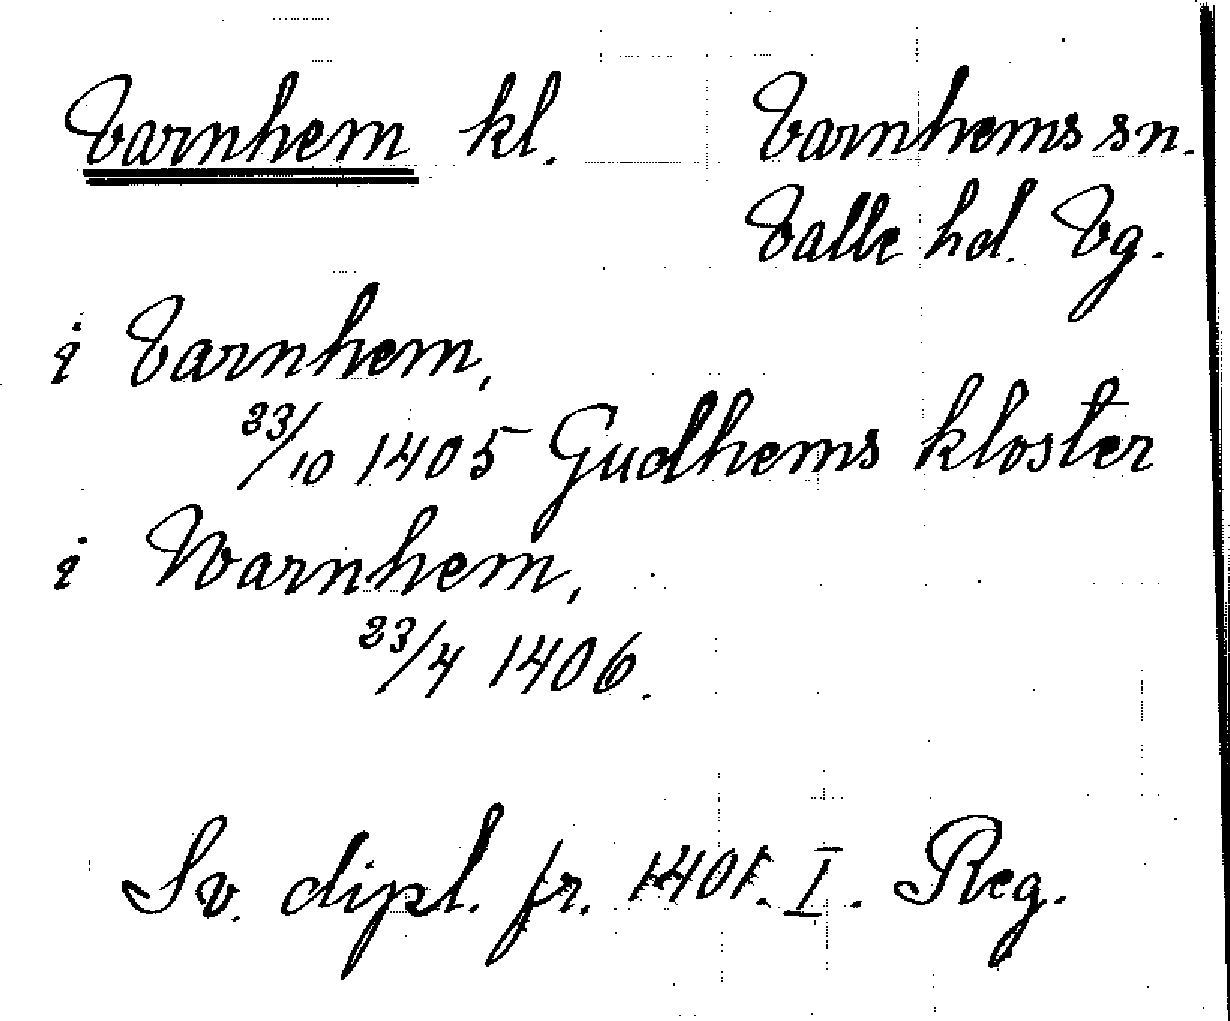 Varnhem kl. Varnhems sn.
Valle hd. Vg.
i Varnhem,
23/10 1405 Gudhems kloster
i Warnhem,
23/4 1406.
Sv. dipl. fr. 1401. I. Reg.